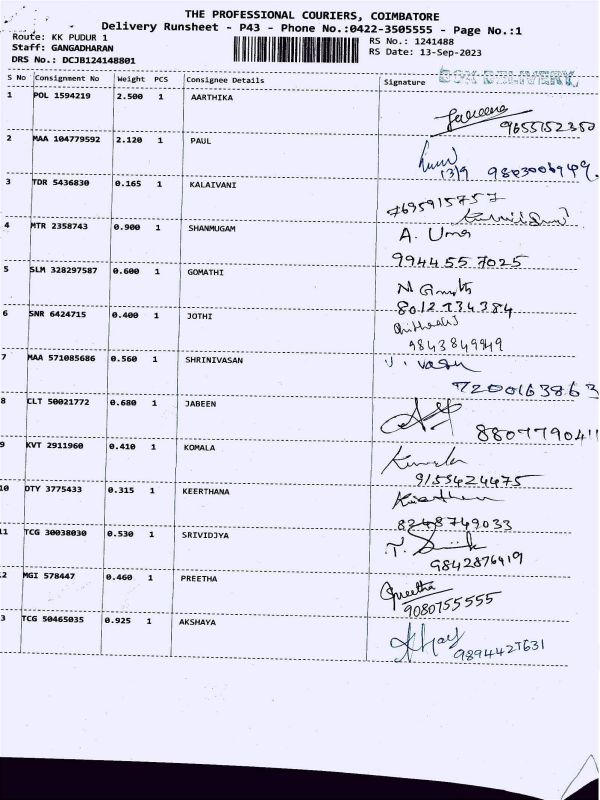 THE PROFESSIONAL COURIERS, COIMBATORE
Delivery Runsheet - P43 - Phone No.:0422-3505555 - Page No.:1
Route: KK PUDUR 1
RS No.: 1241488
Staff: GANGADHARAN
RS Date: 13-Sep-2023
DRS No.: DCJB124148801
S No Consignment No Weight PCS Consignee Details Signature BOX DELIVERY
1 POL 1594219 2.500 1 AARTHIKA
9655152350
2 MAA 104779592 2.120 1 PAUL
13/9 9803006949
3 TDR 5436830 0.165 1 KALAIVANI
7695915757
4 MTR 2358743 0.900 1 SHANMUGAM
A. Uma
9944557025
5 SLM 328297587 0.600 1 GOMATHI
8012734384
6 SNR 6424715 0.400 1 JOTHI
9843849949
7 MAA 571085686 0.560 1 SHRINIVASAN
7200163863
8 CLT 50021772 0.680 1 JABEEN
8807790411
9 KVT 2911960 0.410 1 KOMALA
Komala
9155424475
10 OTY 3775433 0.315 1 KEERTHANA
8248749033
11 TCG 30038030 0.530 1 SRIVIDJYA
9842876919
2 MGI 578447 0.460 1 PREETHA
Preetha
9080755555
3 TCG 50465035 0.925 1 AKSHAYA
9894427631